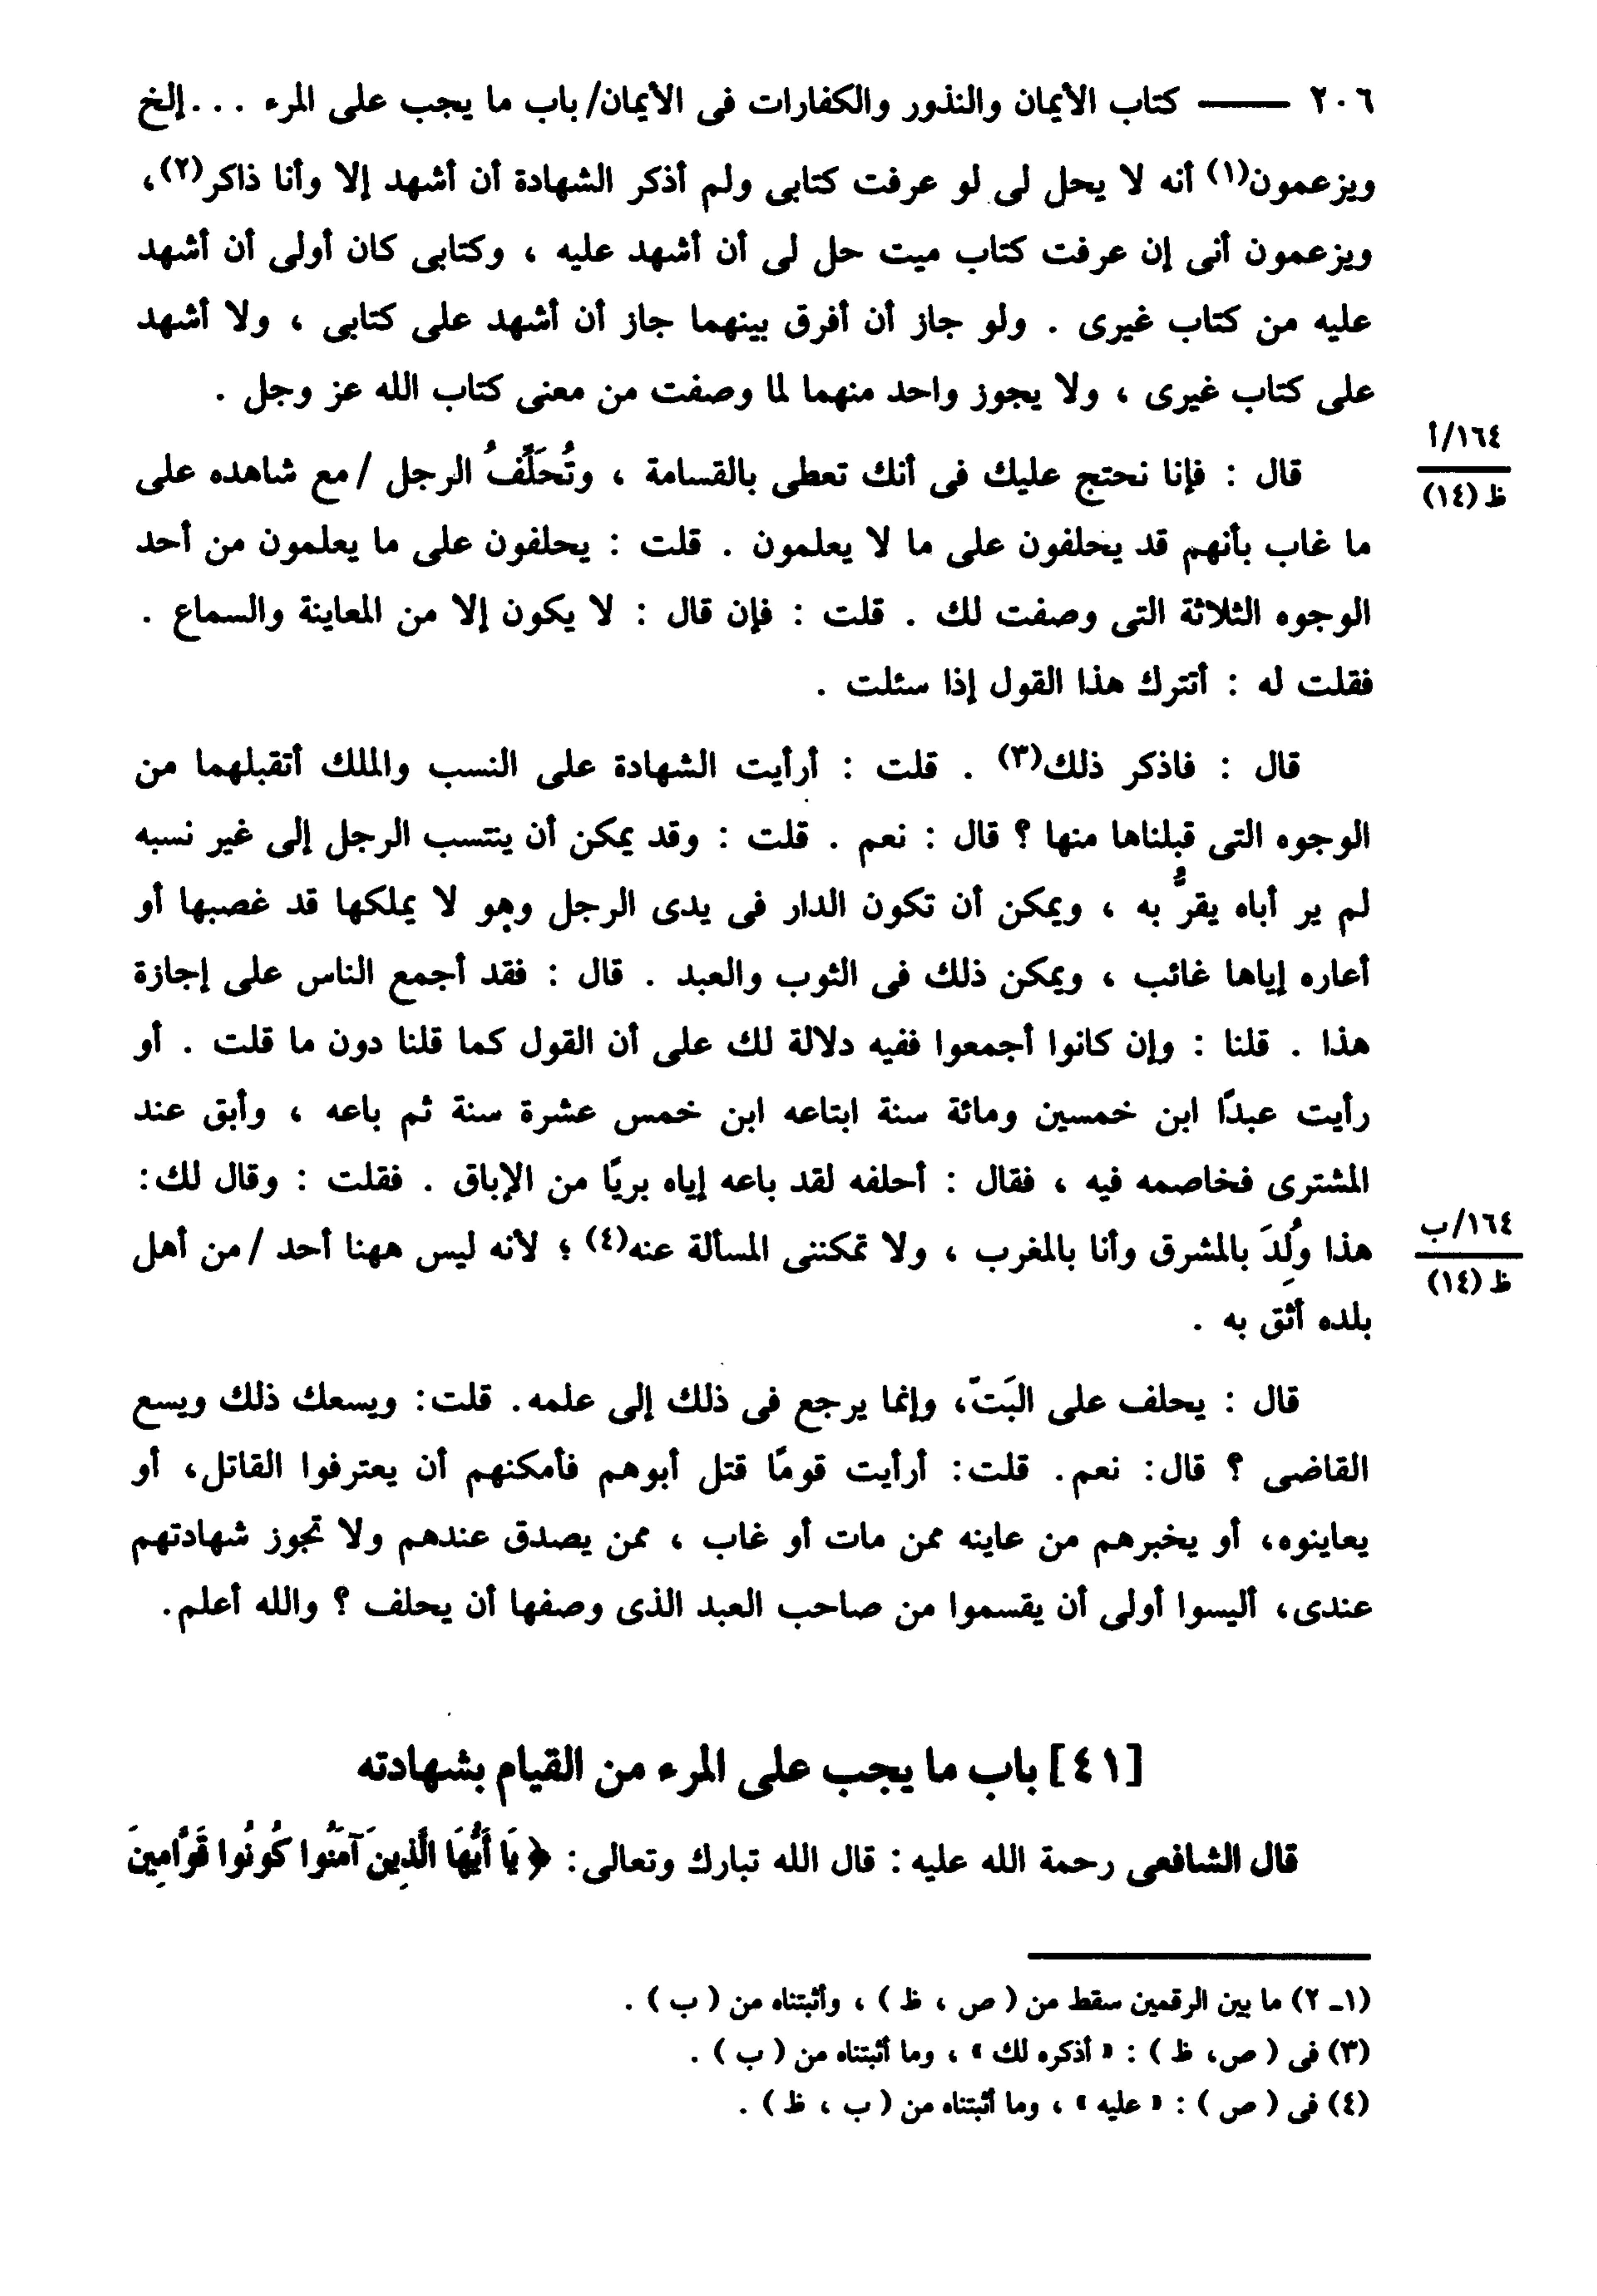 ٢٠٦ ——— كتاب الأيمان والنذور والكفارات فى الأيمان/ باب ما يجب على المرء ... إلخ
ويزعمون(١) أنه لا يحل لى لو عرفت كتابى ولم أذكر الشهادة أن أشهد إلا وأنا ذاكر(٢)،
ويزعمون أنى إن عرفت كتاب ميت حل لى أن أشهد عليه ، وكتابى كان أولى أن أشهد
عليه من كتاب غيرى . ولو جاز أن أفرق بينهما جاز أن أشهد على كتابى ، ولا أشهد
على كتاب غيرى ، ولا يجوز واحد منهما لما وصفت من معنى كتاب الله عز وجل .
١٦٤/أ
ظ (١٤)
قال : فإنا نحتج عليك فى أنك تعطى بالقسامة ، وتُحَلِّفُ الرجل / مع شاهده على
ما غاب بأنهم قد يحلفون على ما لا يعلمون . قلت : يحلفون على ما يعلمون من أحد
الوجوه الثلاثة التى وصفت لك . قلت : فإن قال : لا يكون إلا من المعاينة والسماع .
فقلت له : أتترك هذا القول إذا سئلت .
قال : فاذكر ذلك(٣) . قلت : أرأيت الشهادة على النسب والملك أتقبلهما من
الوجوه التى قبلناها منها ؟ قال : نعم . قلت : وقد يمكن أن ينتسب الرجل إلى غير نسبه
لم ير أباه يقرُّ به ، ويمكن أن تكون الدار فى يدى الرجل وهو لا يملكها قد غصبها أو
أعاره إياها غائب ، ويمكن ذلك فى الثوب والعبد . قال : فقد أجمع الناس على إجازة
هذا . قلنا : وإن كانوا أجمعوا ففيه دلالة لك على أن القول كما قلنا دون ما قلت . أو
رأيت عبدًا ابن خمسين ومائة سنة ابتاعه ابن خمس عشرة سنة ثم باعه ، وأبق عند
المشترى فخاصمه فيه ، فقال : أحلفه لقد باعه إياه بريًا من الإباق . فقلت : وقال لك:
١٦٤/ب
ظ (١٤)
هذا وُلِدَ بالمشرق وأنا بالمغرب ، ولا تمكننى المسألة عنه(٤) ؛ لأنه ليس ههنا أحد / من أهل
بلده أثق به .
قال : يحلف على البَتّ، وإنما يرجع فى ذلك إلى علمه. قلت: ويسعك ذلك ويسع
القاضى ؟ قال: نعم. قلت: أرأيت قومًا قتل أبوهم فأمكنهم أن يعترفوا القاتل، أو
يعاينوه، أو يخبرهم من عاينه ممن مات أو غاب ، ممن يصدق عندهم ولا تجوز شهادتهم
عندى، أليسوا أولى أن يقسموا من صاحب العبد الذى وصفها أن يحلف ؟ والله أعلم.
[٤١] باب ما يجب على المرء من القيام بشهادته
قال الشافعى رحمة الله عليه : قال الله تبارك وتعالى: ﴿ يَا أَيُّهَا الَّذِينَ آمَنُوا كُونُوا قَوَّامِينَ
(١ـ ٢) ما بين الرقمين سقط من ( ص ، ظ ) ، وأثبتناه من ( ب ) .
(٣) فى ( ص، ظ ) : « أذكره لك » ، وما أثبتناه من ( ب ) .
(٤) فى ( ص ) : « عليه » ، وما أثبتناه من ( ب ، ظ ) .